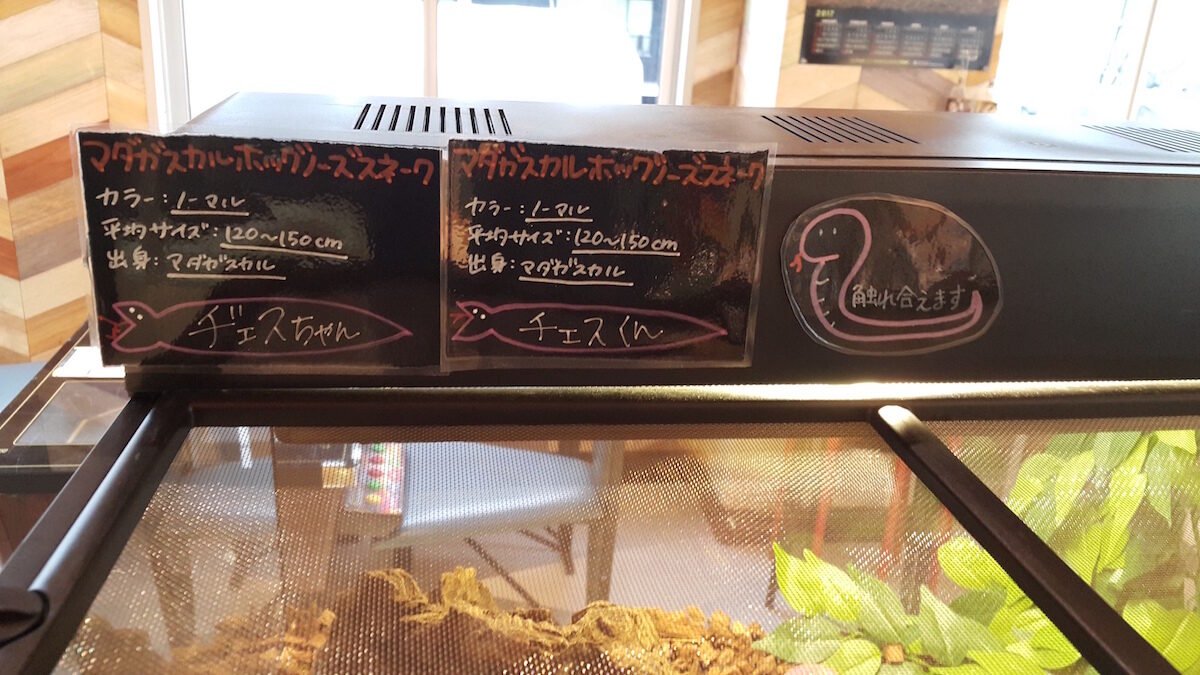 2017
マダガスカルホッグノーズスネーク
カラー：ノーマル
平均サイズ：120〜150cm
出身：マダガスカル
ヂェスちゃん
マダガスカルホッグノーズスネーク
カラー：ノーマル
平均サイズ：120〜150cm
出身：マダガスカル
チェスくん
触れ合えます